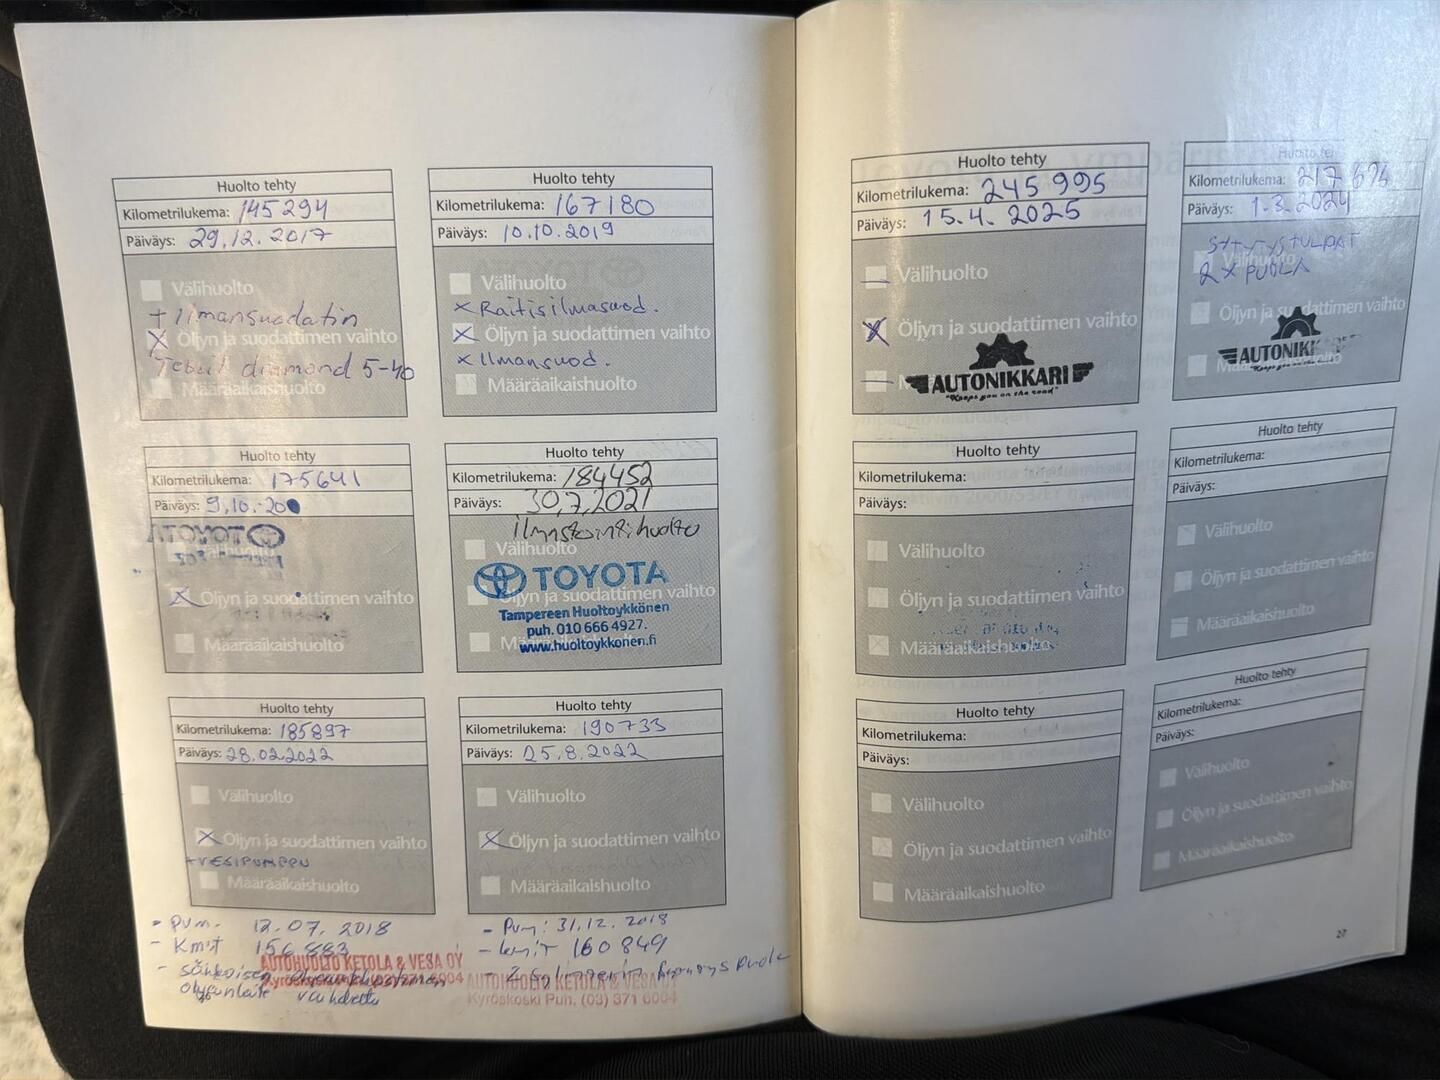 Huolto tehty
Kilometrilukema: 145294
Päiväys: 29.12.2017
Välihuolto
+ Ilmansuodatin
Öljyn ja suodattimen vaihto
diamond 5-40
Määräaikaishuolto
Huolto tehty
Kilometrilukema: 167180
Päiväys: 10.10.2019
Välihuolto
x Raitisilmasuod.
Öljyn ja suodattimen vaihto
x Ilmansuod.
Määräaikaishuolto
Huolto tehty
Kilometrilukema: 175641
Päiväys: 9.10.20
Välihuolto
Öljyn ja suodattimen vaihto
Määräaikaishuolto
Huolto tehty
Kilometrilukema: 184452
Päiväys: 30.7.2021
ilmastointihuolto
Välihuolto
TOYOTA
Öljyn ja suodattimen vaihto
Tampereen Huoltoykkönen
puh. 010 666 4927.
Määräaikaishuolto
www.huoltoykkonen.fi
Huolto tehty
Kilometrilukema: 185897
Päiväys: 28.02.2022
Välihuolto
Öljyn ja suodattimen vaihto
+VESIPUMPPU
Määräaikaishuolto
Huolto tehty
Kilometrilukema: 190733
Päiväys: 25.8.2022
Välihuolto
Öljyn ja suodattimen vaihto
Määräaikaishuolto
- Pvm. 12.07.2018
- Kmit 156883
AUTOHUOLTO KETOLA & VESA OY
- sähköisen
vaihdettu
26
- Pvm: 31.12.2018
- kmit 160849
AUTOHUOLTO KETOLA & VESA OY
Kyröskoski Puh. (03) 371 6004
Huolto tehty
Kilometrilukema: 245995
Päiväys: 15.4.2025
Välihuolto
Öljyn ja suodattimen vaihto
AUTONIKKARI
"Keeps you on the road"
Huolto tehty
Kilometrilukema: 217694
Päiväys: 1.3.2024
SYTYTYSTULPAT
2 x PUOLA
AUTONIKK
Huolto tehty
Kilometrilukema:
Päiväys:
Välihuolto
Öljyn ja suodattimen vaihto
Määräaikaishuolto
Huolto tehty
Kilometrilukema:
Päiväys:
Välihuolto
Öljyn ja suodattimen vaihto
Määräaikaishuolto
Huolto tehty
Kilometrilukema:
Päiväys:
Välihuolto
Öljyn ja suodattimen vaihto
Määräaikaishuolto
Huolto tehty
Kilometrilukema:
Päiväys:
Välihuolto
Öljyn ja suodattimen vaihto
Määräaikaishuolto
27